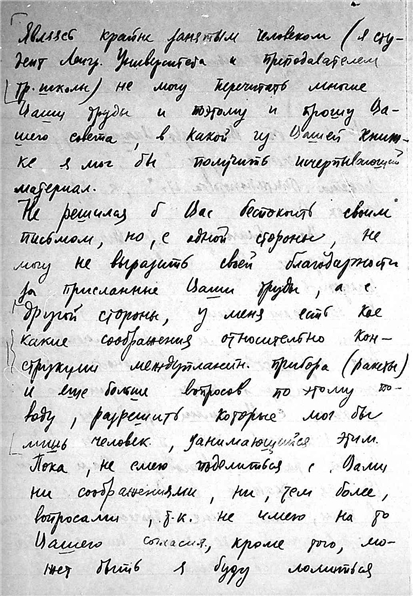 Являясь крайне занятым человеком (я сту-
дент Ленгр. Университета и преподавателем
тр. школы) не могу перечитать многие
Ваши труды и поэтому и прошу Ва-
шего совета, в какой из Вашей книж-
ке я мог бы получить исчерпывающий
материал.
Не решился б Вас беспокоить своим
письмом, но, с одной стороны, не
могу не выразить своей благодарности
за присланные Ваши труды, а с
другой стороны, у меня есть кое
какие соображения относительно кон-
струкции междупланетн. прибора (ракеты)
и еще больше вопросов по этому по-
воду, разрешить которые мог бы
лишь человек, занимающийся этим.
Пока, не смею поделиться с Вами
ни соображениями, ни, тем более,
вопросами, т.к. не имею на то
Вашего согласия, кроме того, мо-
жет быть я буду ломиться